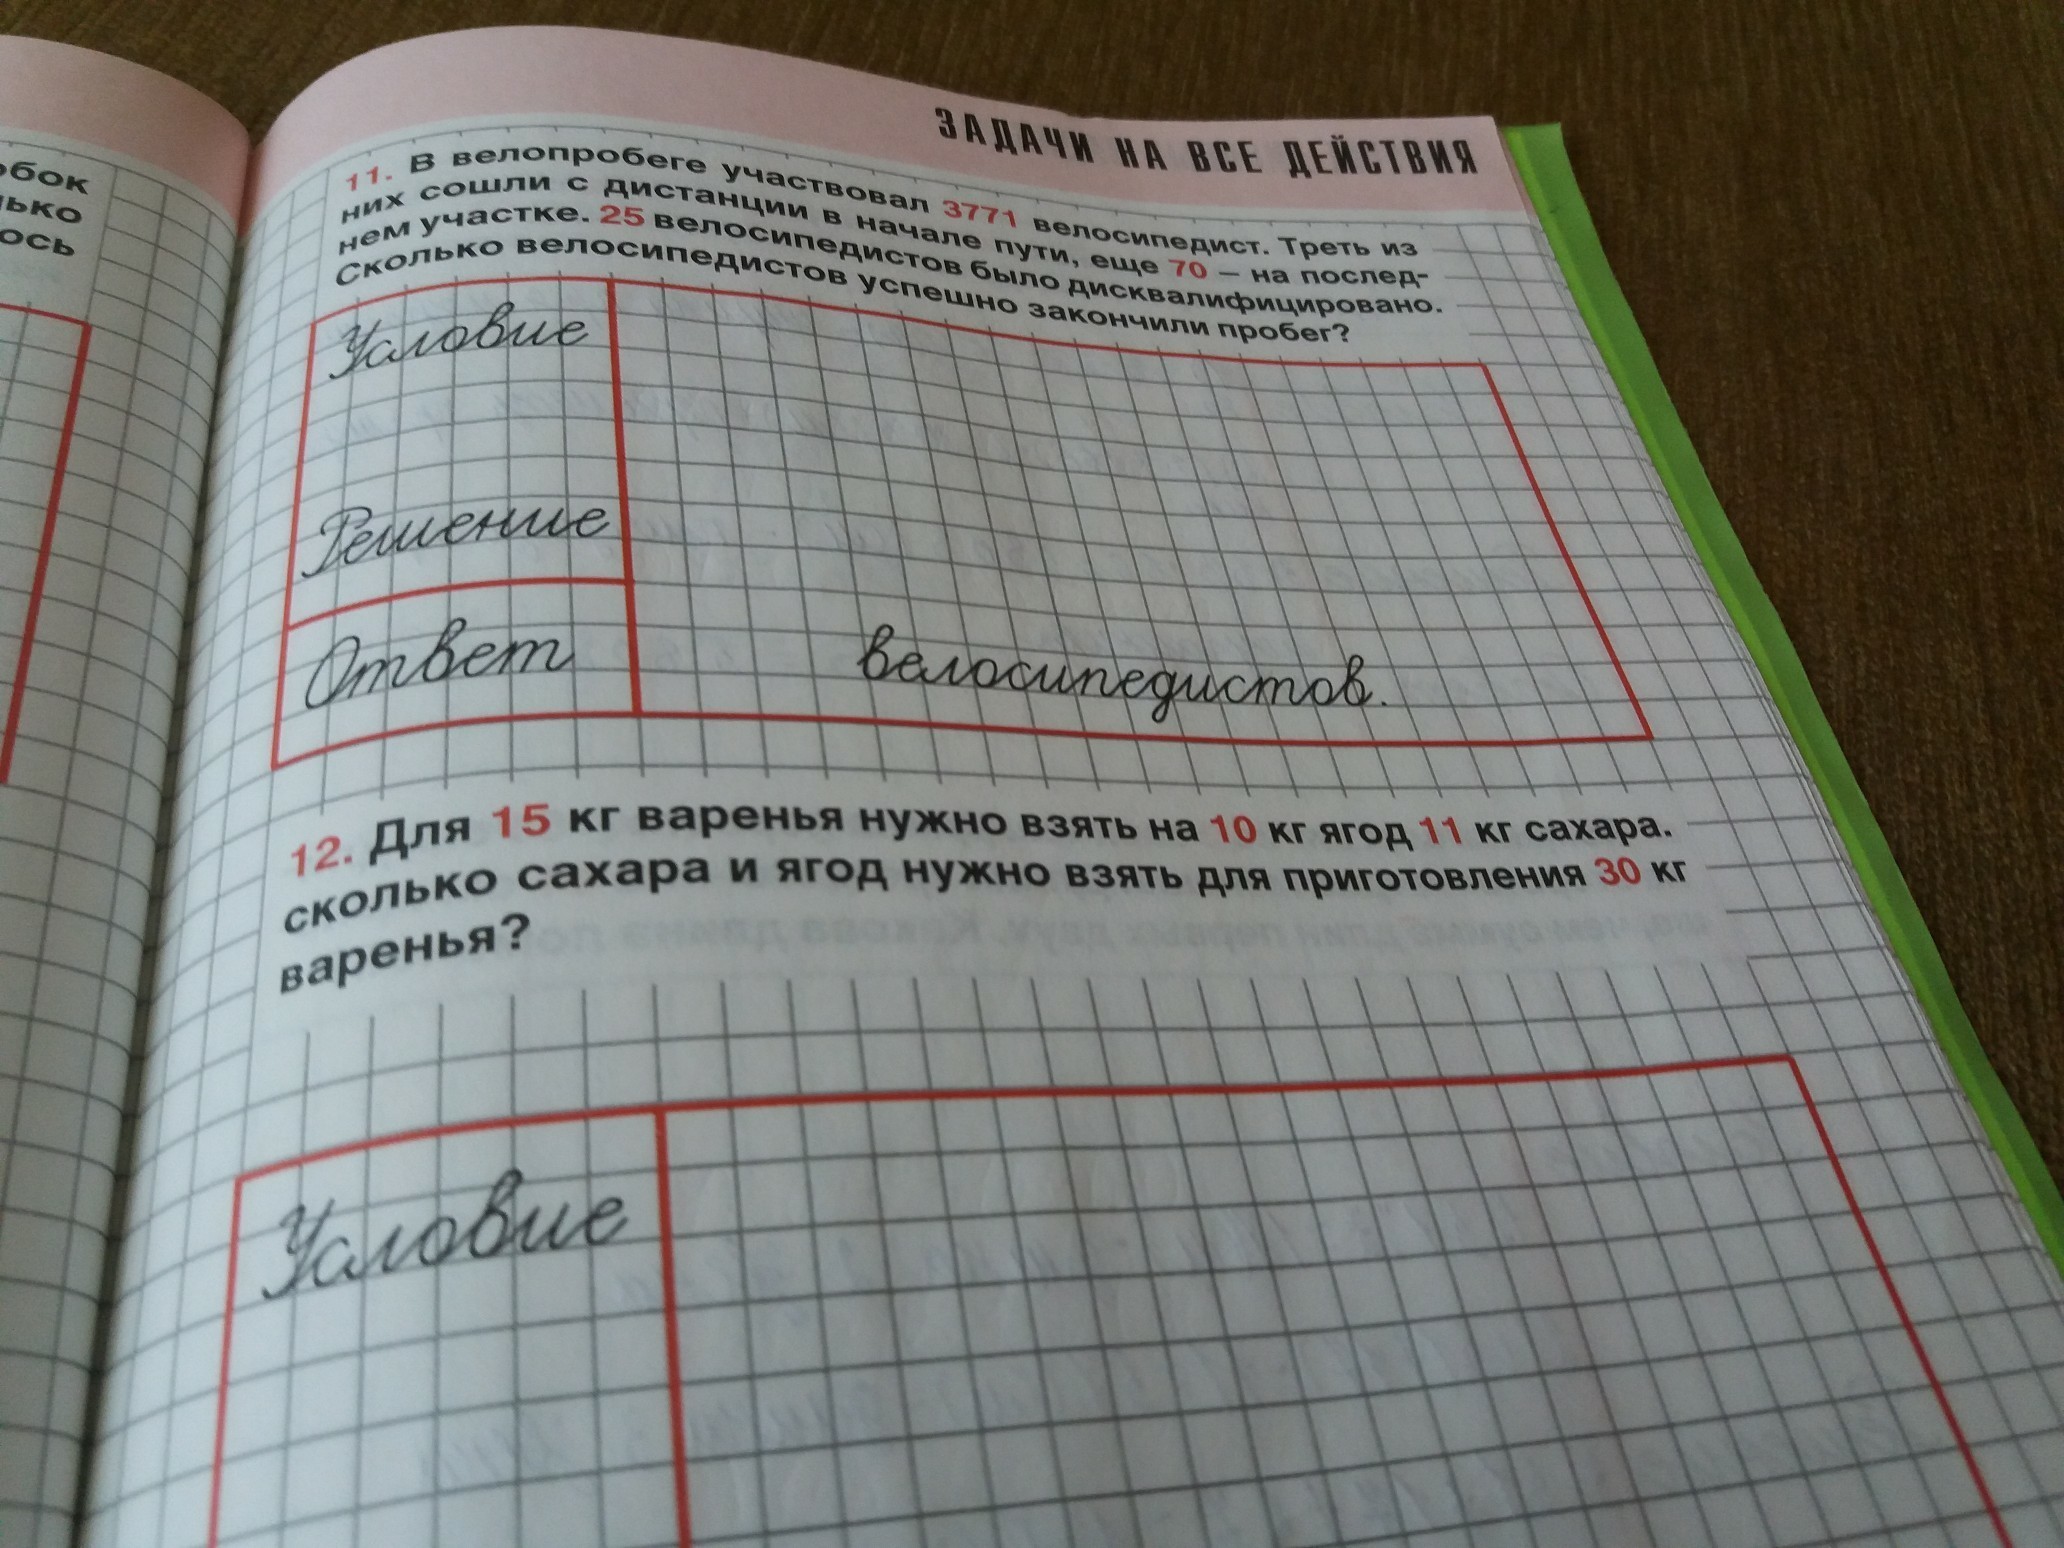 обок
ЗАДАЧИ НА ВСЕ ДЕЙСТВИЯ
11. В велопробеге участвовал 3771 велосипедист. Треть из
них сошли с дистанции в начале пути, еще 70 – на послед-
нем участке. 25 велосипедистов было дисквалифицировано.
Сколько велосипедистов успешно закончили пробег?
Условие
Решение
Ответ велосипедистов.
12. Для 15 кг варенья нужно взять на 10 кг ягод 11 кг сахара.
сколько сахара и ягод нужно взять для приготовления 30 кг
варенья?
Условие